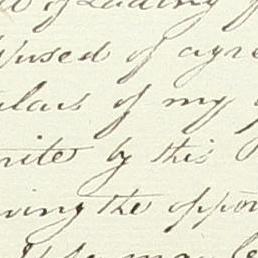 of Lading
used of agre
ulars of my
rite by this
ving the oppor